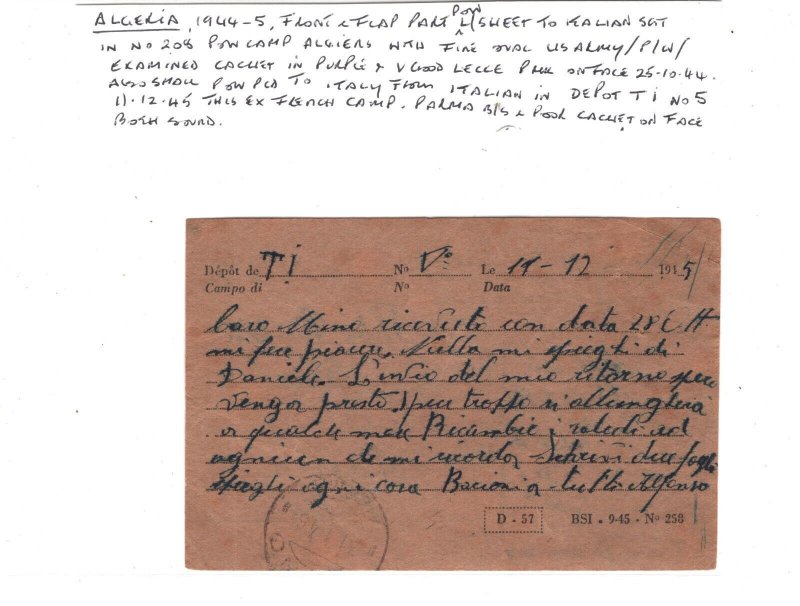 ALGERIA, 1944-5, FRONT & FLAP PART POW L/SHEET TO ITALIAN SGT
IN NO 208 POW CAMP ALGIERS WITH FINE OVAL US ARMY/P/W/
EXAMINED CACHET IN PURPLE & V GOOD LECCE PMK ON FACE 25-10-44.
ALSO SMALL POW PCD TO ITALY FROM ITALIAN IN DEPOT T I NO 5
11.12.45 THIS EX FRENCH CAMP. PARMA B/S & POOR CACHET ON FACE
BOTH SOUND.
Dépôt de T I No V° Le 11-12 1945
Campo di No Data
Caro Mino ricevuto con data 28
mi fece piacere. Nulla mi spieghi di
Daniele. L'invio del mio ritorno spero
venga presto, purtroppo si allungherà
a qualche mese Ricambie i saluti ad
ognuno che mi ricorda Scrivi due fogli
spieghi ogni cosa Bacioni a tutti Alfonso
D - 57 BSI . 9-45 - No 258